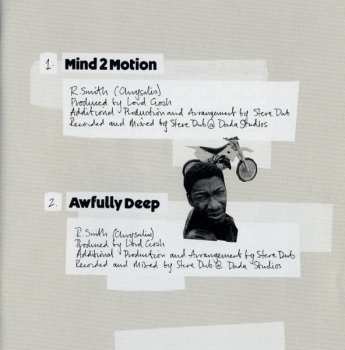 1. Mind 2 Motion
R. Smith (Chrysalis)
Produced by Lord Gosh
Additional Production and Arrangement by Steve Dub
Recorded and Mixed by Steve Dub @ Dada Studios
2. Awfully Deep
R. Smith (Chrysalis)
Produced by Lord Gosh
Additional Production and Arrangement by Steve Dub
Recorded and Mixed by Steve Dub @ Dada Studios